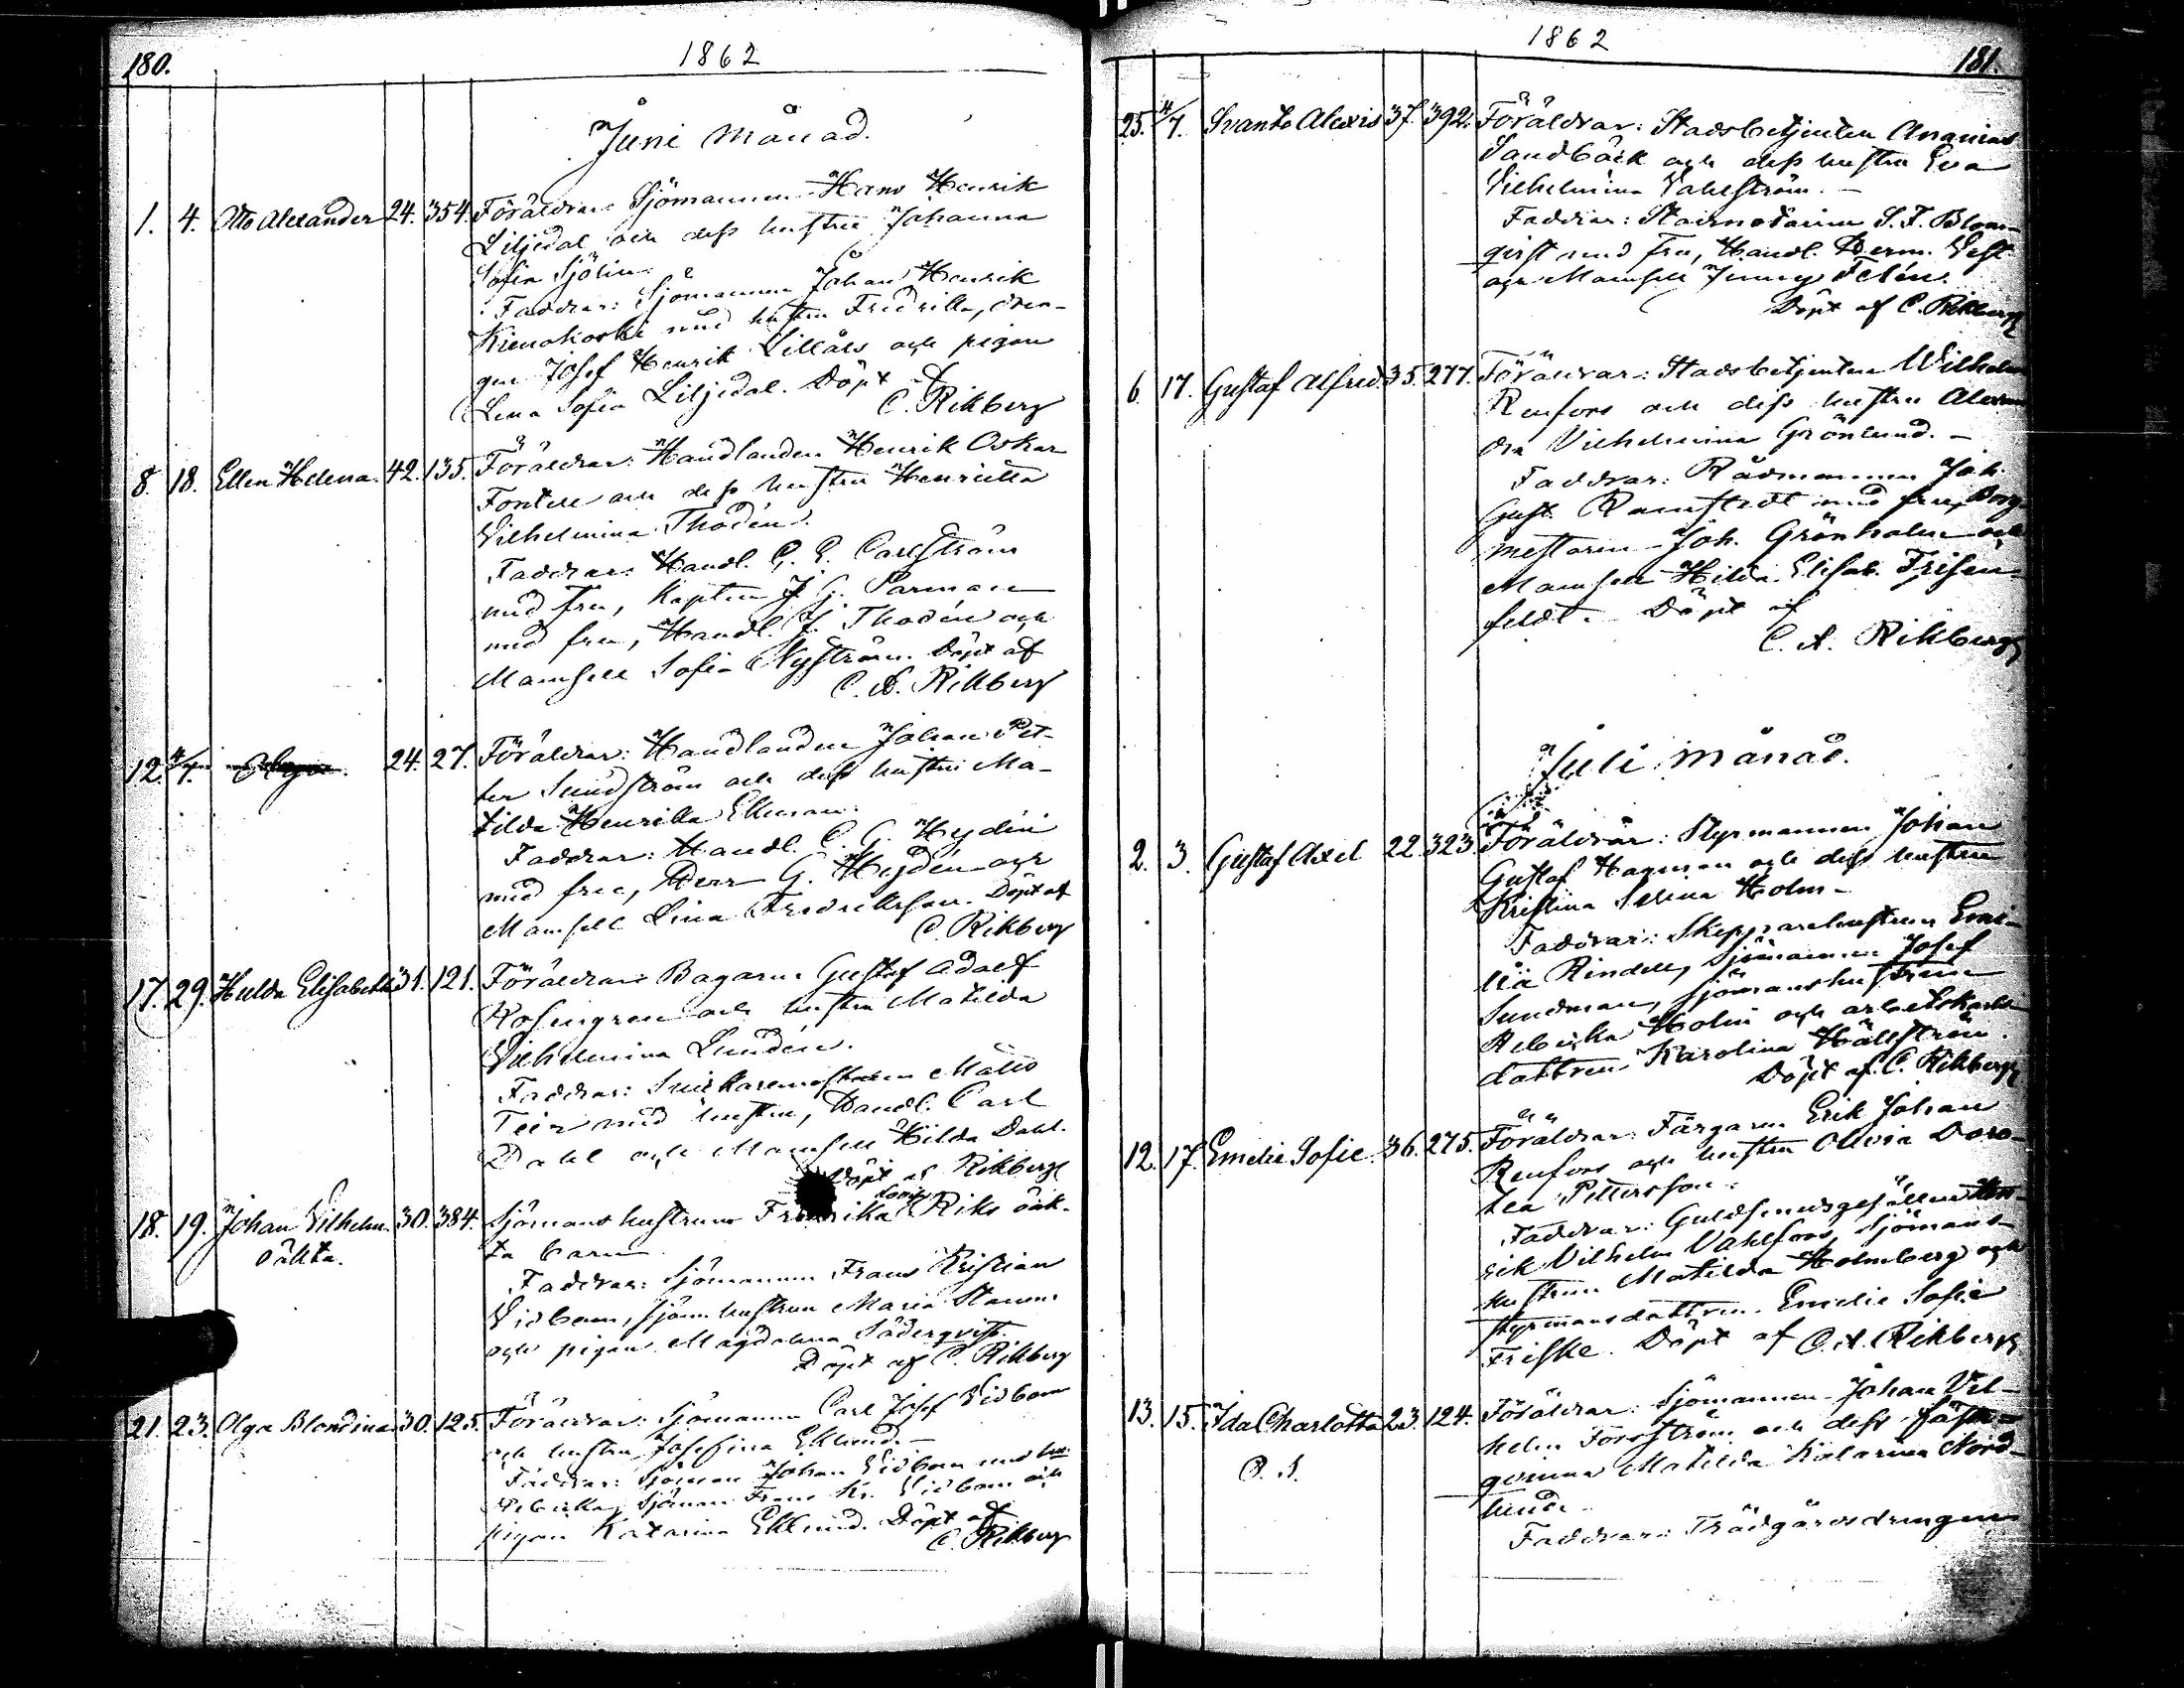 180.
1862
Juni månad.
1. 4. Otto Alexander 24. 354. Föräldrar: Sjömannen Hans Henrik
Liljedal och dess hustru Johanna
Sofia Sjölin.
Faddrar: Sjömannen Johan Henrik
med hustru Fredrika, drän-
gen Josef Henrik Lillåls och pigan
Lena Sofia Liljedal. Döpt af
C. Rikberg
8. 18. Ellen Helena. 42. 135. Föräldrar: Handlanden Henrik Oskar
Fontell och dess hustru Henrietta
Vilhelmina Thodén.
Faddrar: Handl. G. E. Carlström
med fru, Kapten J. G. Parman
med fru, Handl. J. Thodén och
Mamsell Sofia Nyström. Döpt af
C. A. Rikberg
12. 4/7. 24. 27. Föräldrar: Handlanden Johan Pet-
ter Sundström och dess hustru Ma-
tilda Henrika Ekman.
Faddrar: Handl. C. G. Hydén
med fru, Herr G. Heydén och
Mamsell Lina Fredriksson. Döpt af
C. Rikberg
17. 29. Hulda Elisabeth 31. 121. Föräldrar: Bagaren Gustaf Adolf
Rosengren och hustru Matilda
Vilhelmina Lundén.
Faddrar: Snickaremästaren Matts
Teir med hustru, Handl. Carl
Dahl och Mamsell Hilda Dahl.
Döpt af Rikberg
18. 19. Johan Vilhelm 30. 384. Sjömans hustrun Fredrika Riks oäk-
oäkta.
ta barn
Faddrar: Sjömannen Frans Kristian
Vidbom, sjöm. hustrun Maria
och pigan Magdalena Söderqvist.
Döpt af C. Rikberg
21. 23. Olga Blondina 30. 125. Föräldrar: Sjömannen Carl Josef Vidbom
och hustru Josefina Eklund.
Faddrar: Sjöman Johan Vidbom med hu.
Rebecka, Sjöman Frans Kr. Vidbom och
pigan Katarina Eklund. Döpt af
C. Rikberg
1862
181.
25. 4/7. Svante Alexis 37. 392. Föräldrar: Stadsbetjenten Ananias
Sandbäck och dess hustru Eva
Vilhelmina Vahlström.
Faddrar: Stadsnotarien S. F. Blom-
qvist med fru, Handl. Herm. Vest
och Mamsell Jenny Felén.
Döpt af C. Rikberg
6. 17. Gustaf Alfred. 35. 277. Föräldrar: Stadsbetjenten Wilhelm
Renfors och dess hustru Alexan
dra Vilhelmina Grönlund.
Faddrar: Rådmannen Joh.
Gust. Ramstedt med fru, Borg-
mestaren Joh. Grönholm och
Mamsell Hilda Elisab. Frisen-
feldt. Döpt af
C. A. Rikberg
Juli månad.
2. 3. Gustaf Axel 22. 323. Föräldrar: Styrmannen Johan
Gustaf Hagman och dess hustru
Kristina Selma Holm
Faddrar: Skepparehustrun Emi-
lia Rindell, Sjömannen Josef
Sundman, sjömanshustrun
Rebecka Holm och arbetskarls
dottren Karolina Hällström.
Döpt af C. Rikberg
12. 17. Emelie Sofie 36. 275. Föräldrar: Färgaren Erik Johan
Renfors och hustru Olivia Doro-
tea Pettersson.
Faddrar: Guldsmedsgesällen Hen-
rik Vilhelm Vahlfors, Sjömans-
hustrun Matilda Holmberg och
styrmansdottren Emelie Sofie
Friske. Döpt af C. A. Rikberg
13. 15. Ida Charlotta 23. 124. Föräldrar: Sjömannen Johan Vil-
helm Forsström och dess fäste-
qvinna Matilda Katarina Nord-
lund.
Faddrar: Trädgårdsdrengen